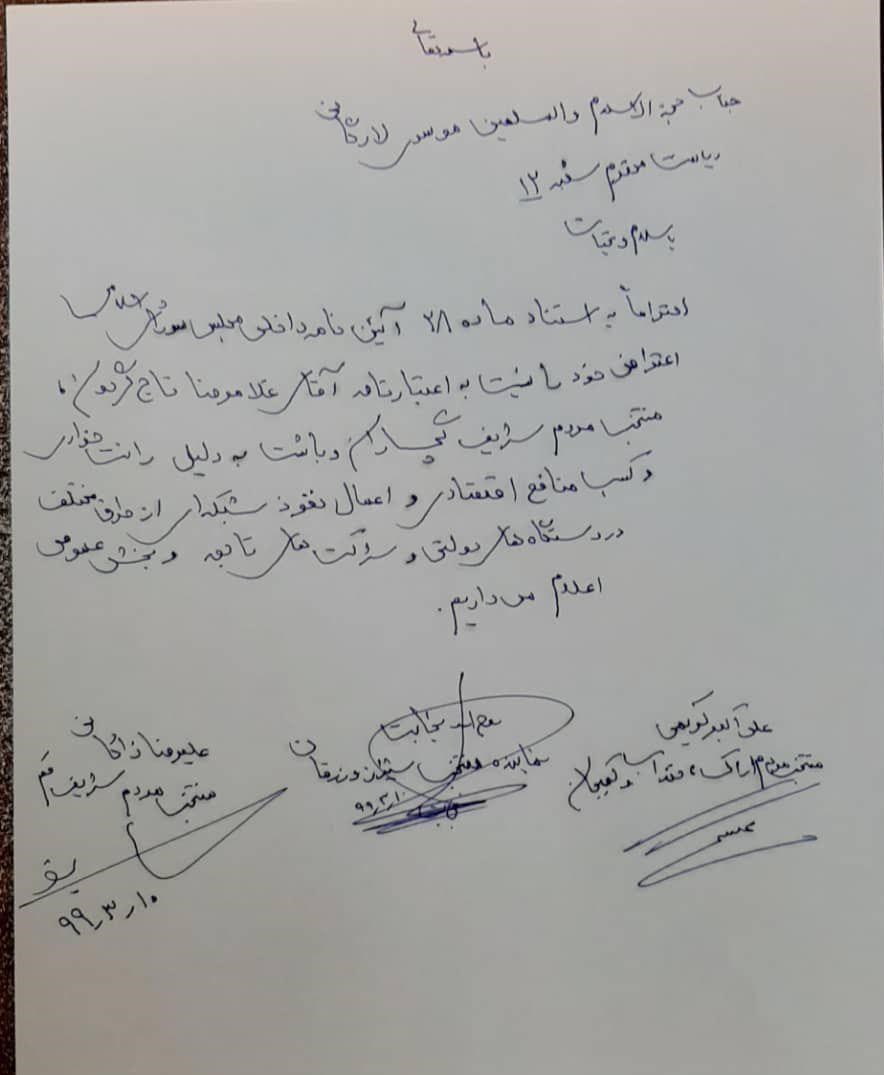 باسمه تعالی
جناب حجة الاسلام والمسلمین موسوی لارگانی
ریاست محترم شعبه ۱۲
باسلام و تحیات
احتراماً به استناد ماده ۲۸ آئین نامه داخلی مجلس شورای اسلامی
اعتراض خود را نسبت به اعتبارنامه آقای غلامرضا تاج گردون،
منتخب مردم شریف گچساران و باشت به دلیل رانت خواری
و کسب منافع اقتصادی و اعمال نفوذ شبکه‌ای از طرق مختلف
در دستگاه های دولتی و شرکت های تابعه و بخش عمومی
اعلام می داریم.
علی اکبر کریمی
منتخب مردم اراک، خنداب و کمیجان
روح اله نجابت
نماینده منتخب شیراز و زرقان
۹۹،۳،۱۰
علیرضا زاکانی
منتخب مردم شریف قم
۹۹،۳،۱۰